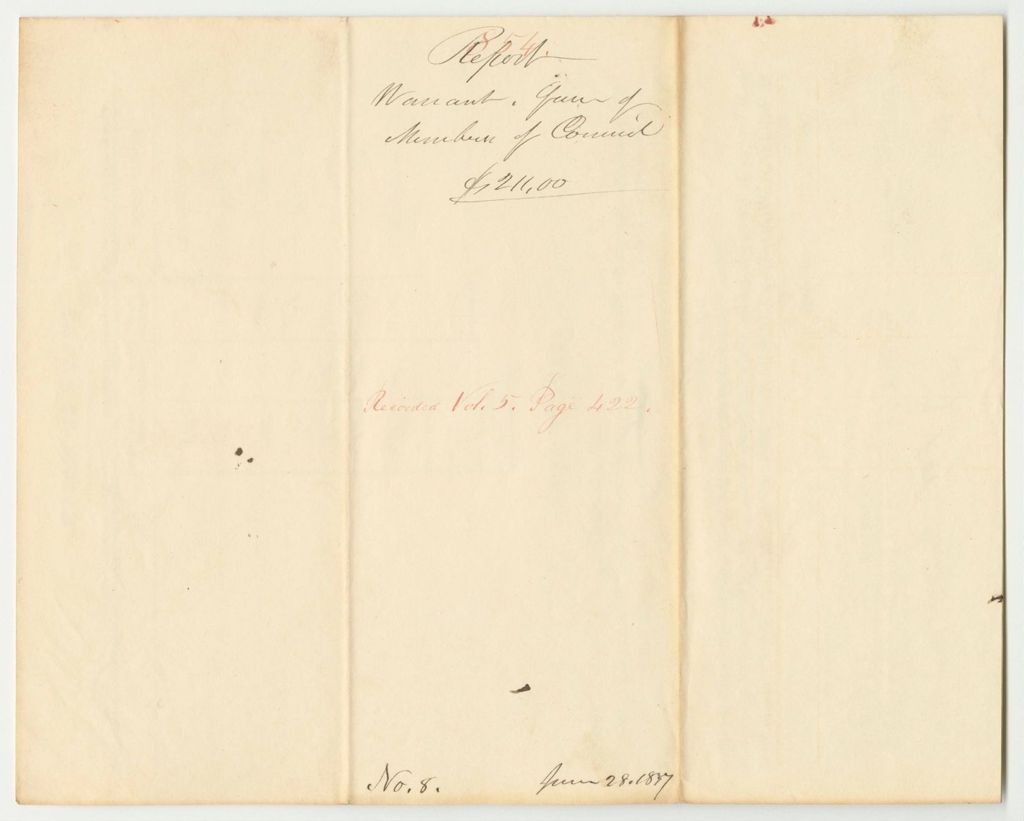 854
Report
Warrant, favr of
Members of Council
$211,00
Recorded Vol. 5. Page 422.
No. 8.
June 28. 1837